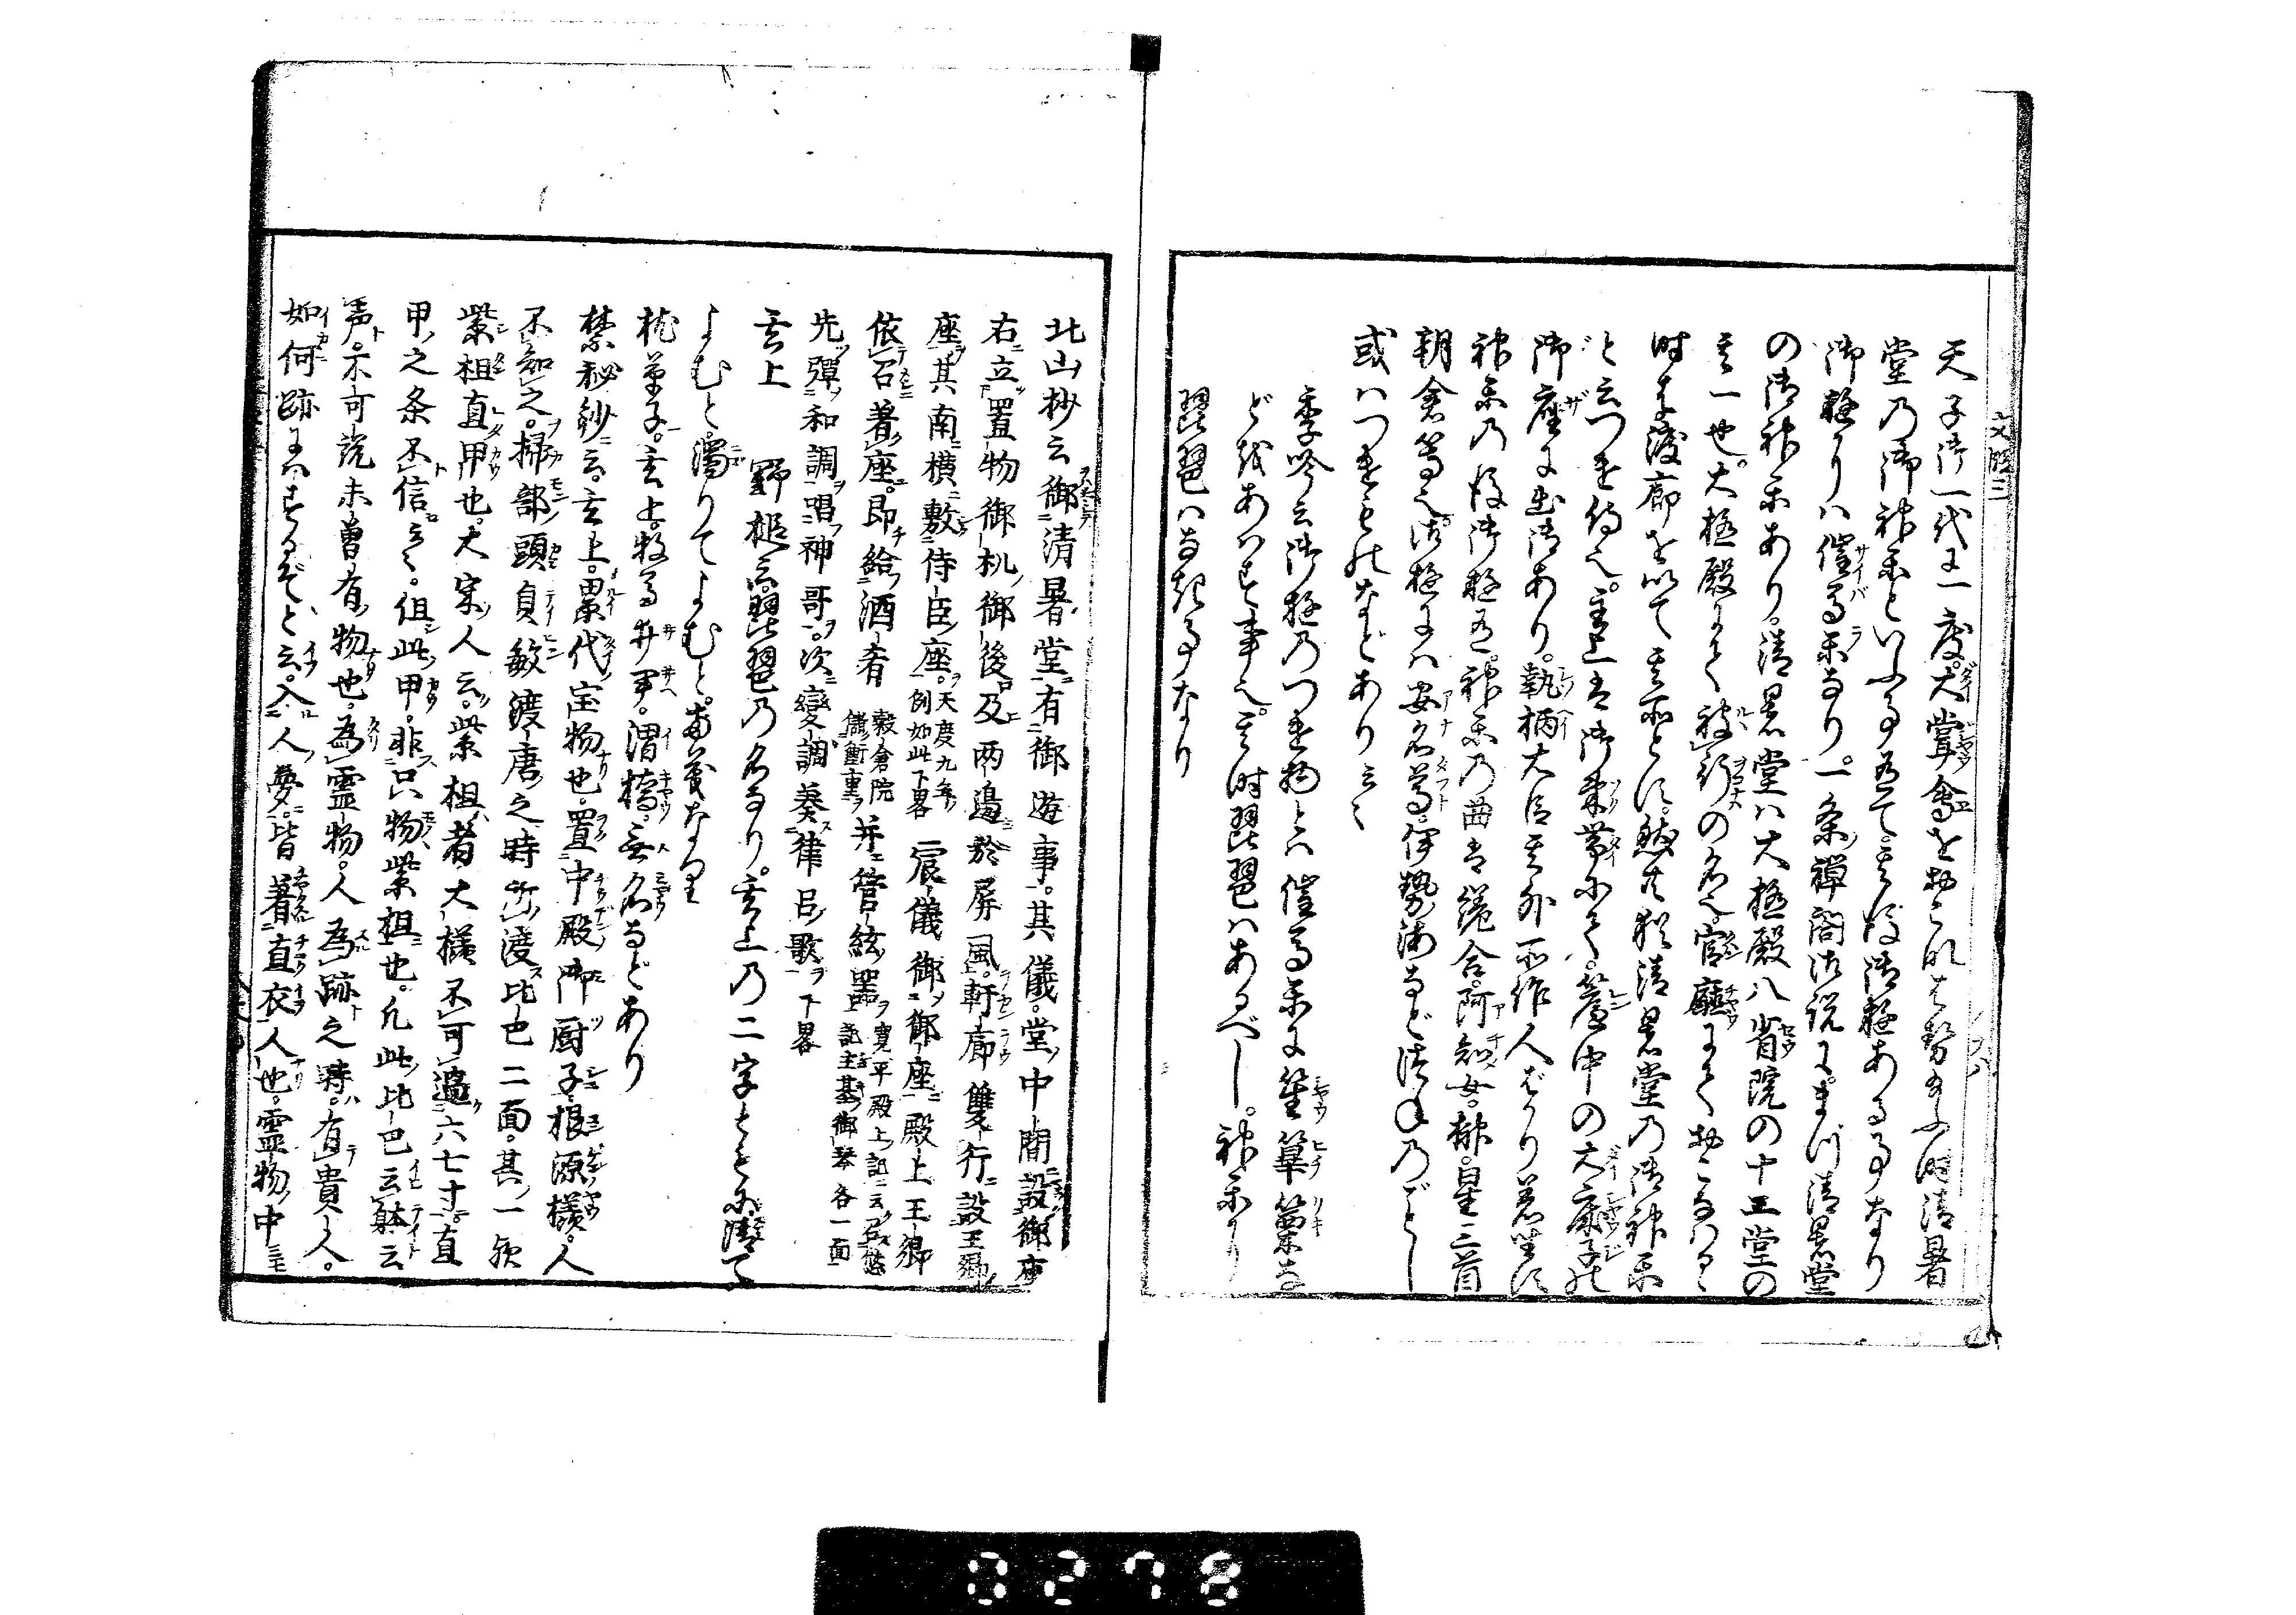 文段三
天子御一代に一度。大嘗會をおこなはせ給ふ時清暑
堂の御神楽といふ事有て。其後御遊ある事なり
御遊りは催馬楽なり。一条禅閤御説に。まづ清暑堂
の御神楽あり。清暑堂は大極殿八省院の十三堂の
其一也。大極殿にて被行の名也。官廳にておこなはるゝ
時は渡廊を以て其所とす。然共猶清暑堂の御神楽
と云つたへ侍る。主上は御束帯にて。簾中の大床子の
御座に出御あり。執柄大臣其外所作人ばかり着座す
神楽の後御遊有。神楽の曲は縒合。阿知女。榊。星三首
朝倉等也。御遊には安名尊。伊勢海など済〻のごとし
或はつけものなどあり云々
季吟云御遊のつけ物とは催馬楽に笙篳篥な
どをあはす事也。其時琵琶はあるべし。神楽に
琵琶はなき事なり
北山抄云御清暑堂有御遊事。其儀。堂中間設御座
右立置物御机御後及両邊於屏風。軒廊雙行設王卿
座其南横敷侍臣座。天慶九年例如此下略 宸儀御御座殿上王卿
依召着座。即給酒肴 穀倉院儲衝重 并管絃器 寛平殿上記云召悠記主基御琴各一面
先彈和調唱神哥。次變調奏律呂歌下畧
玄上 野槌云琵琶の名なり。玄上の二字ともに澄て
よむと。濁りてよむと。両義なり
枕草子。玄上。牧馬井手。渭橋。無名などあり
禁秘鈔云。玄上。累代宝物也。置中殿御厨子。根源様。人
不知之。掃部頭貞敏渡唐之時所渡比巴二面。其一歟
紫祖直甲也。大宋人云。紫祖者大様不可過六七寸。直
甲之条不信云々。但此甲。非只物紫祖也。凡此比巴云躰云
声。不可説未曽有物也。為霊物。人為跡之時。有貴人。
如何跡にはするぞと云。入人夢。皆着直衣人也。霊物中
0278